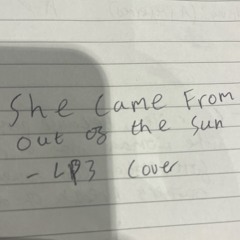 She Came From
out of the Sun
- LP3 Cover